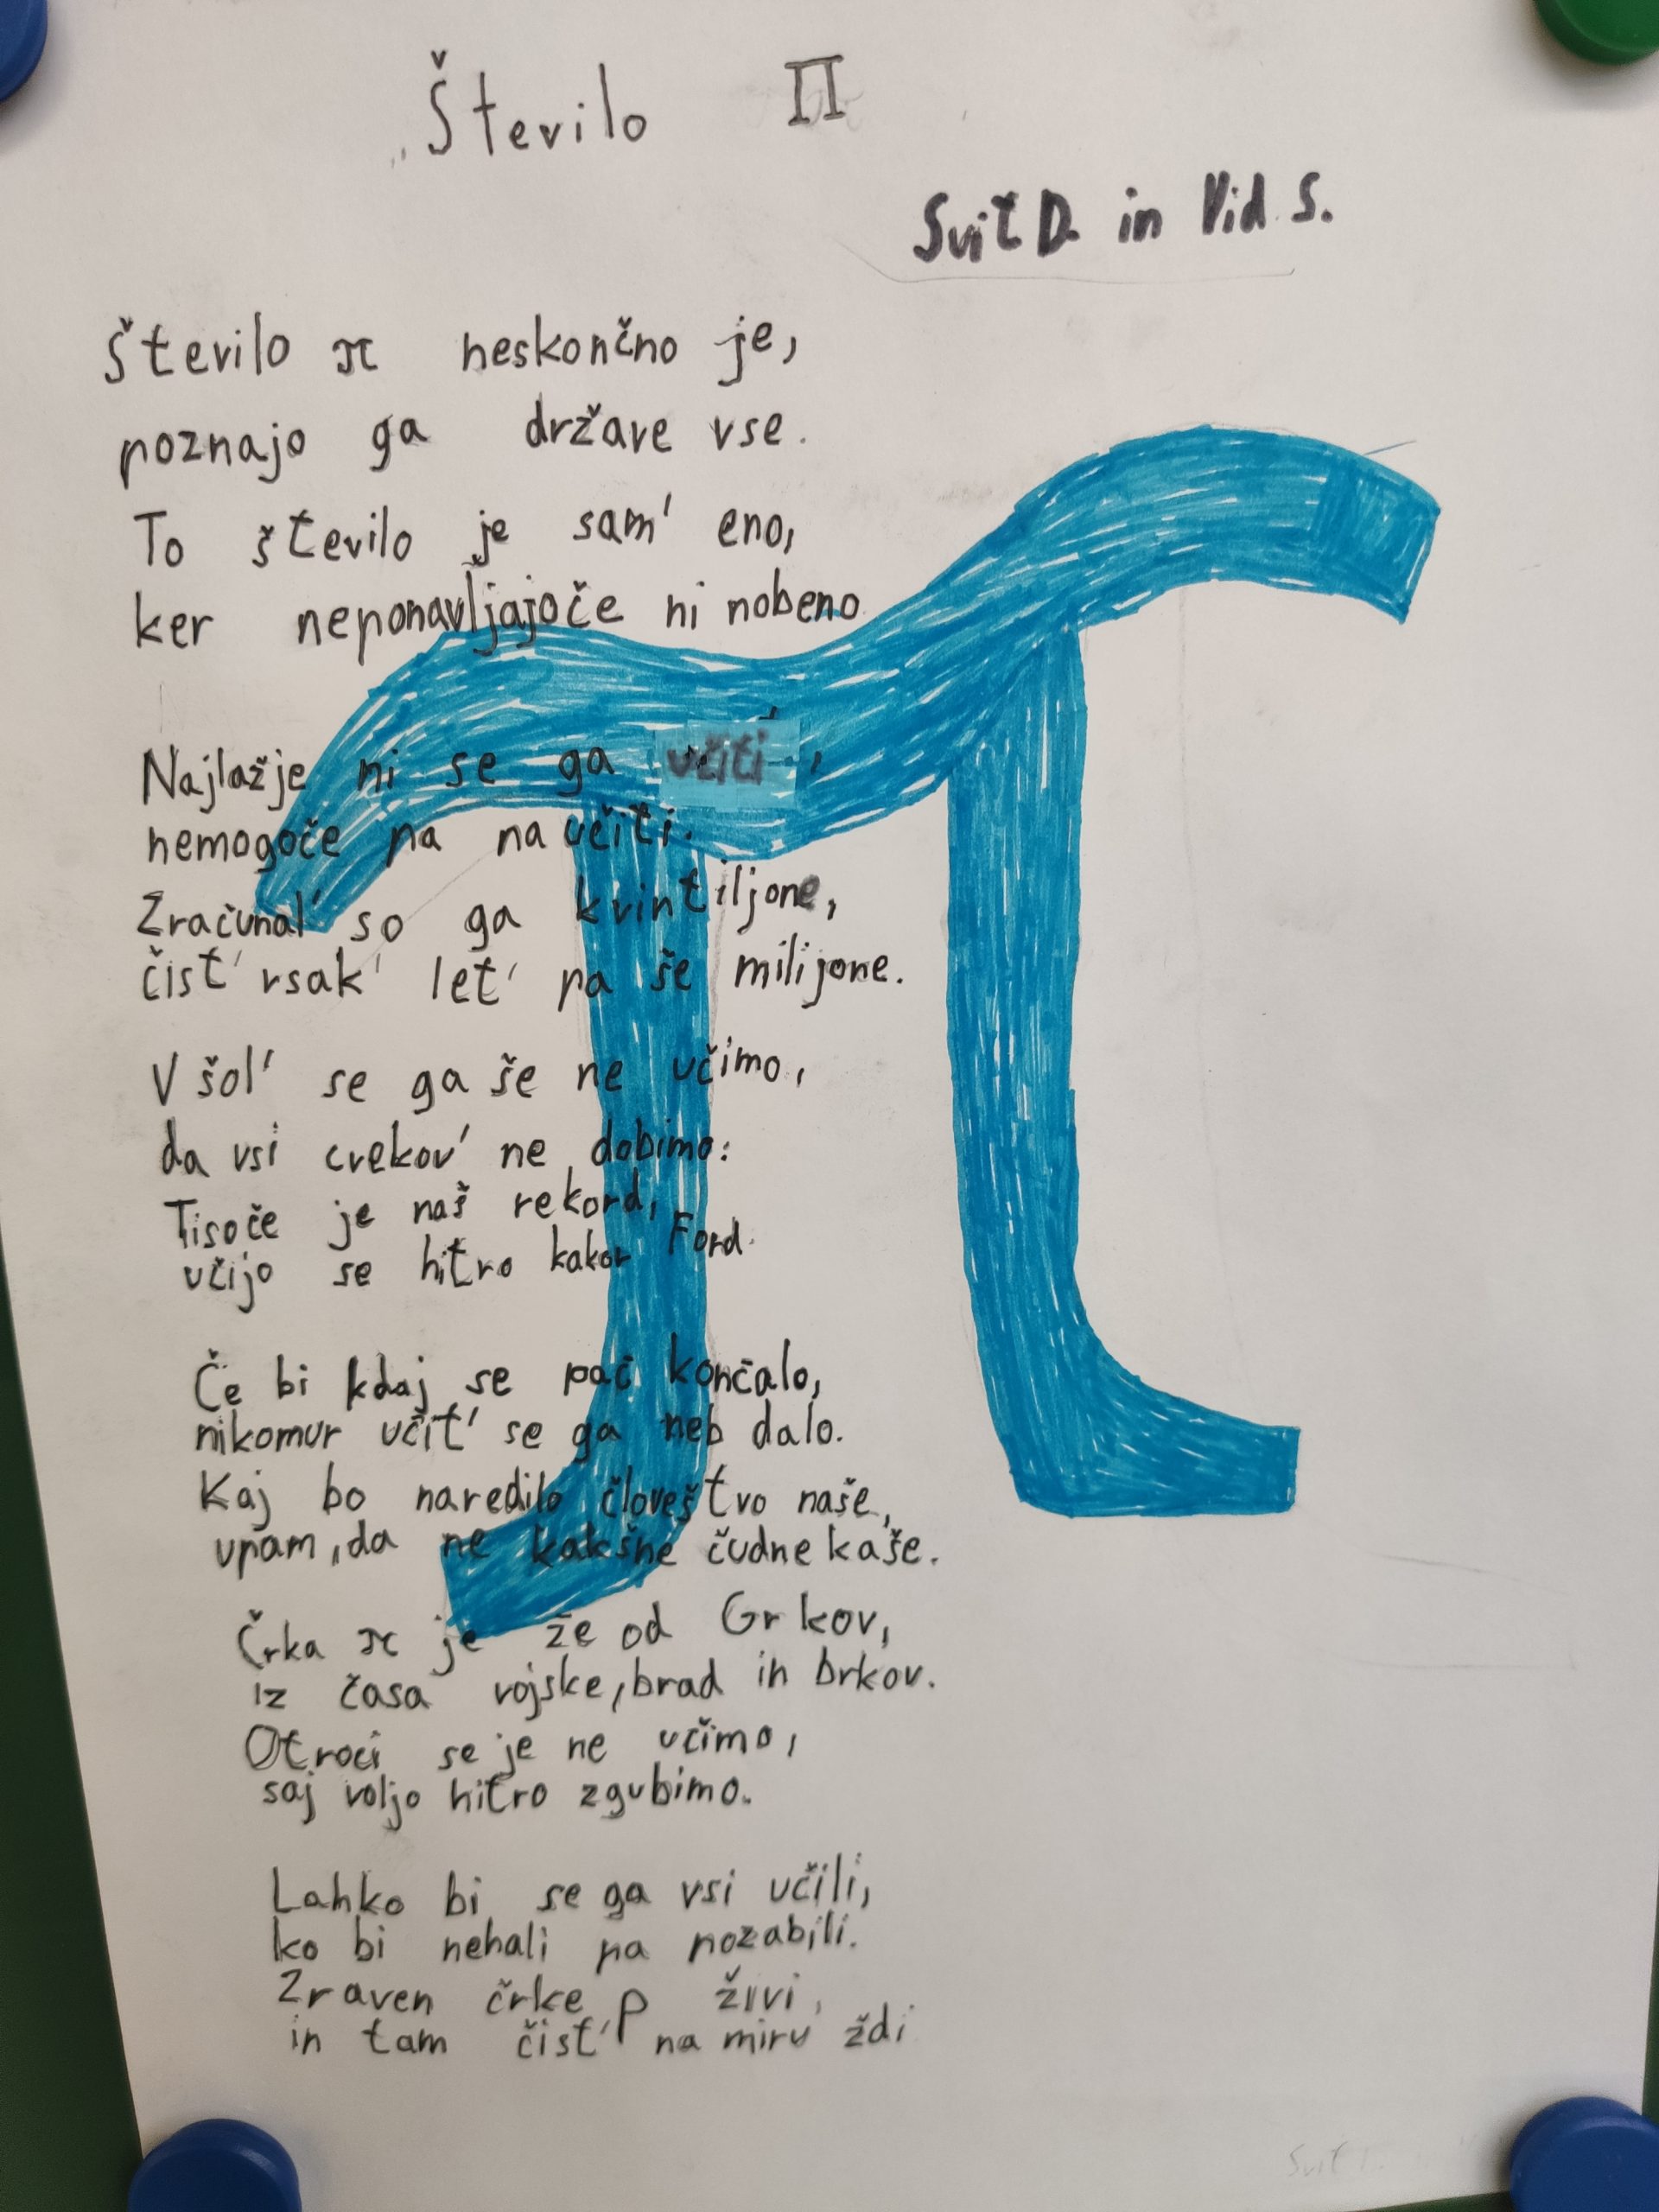 Število Π
Svit D. in Vid S.
Število π neskončno je,
poznajo ga države vse.
To število je sam' eno,
ker neponavljajoče ni nobeno
Najlažje ni se ga učiti,
nemogoče pa naučiti.
Zračunal' so ga kvintiljone,
čist' vsak' let' pa še milijone.
V šol' se ga še ne učimo,
da vsi cvekov' ne dobimo:
Tisoče je naš rekord,
učijo se hitro kakor Ford.
Če bi kdaj se pač končalo,
nikomur učit' se ga neb dalo.
Kaj bo naredilo človeštvo naše,
upam, da ne kakšne čudne kaše.
Črka π je že od Grkov,
iz časa vojske, brad in brkov.
Otroci se je ne učimo,
saj voljo hitro zgubimo.
Lahko bi se ga vsi učili,
ko bi nehali pa pozabili.
Zraven črke ρ živi,
in tam čist' na miru ždi
Svit